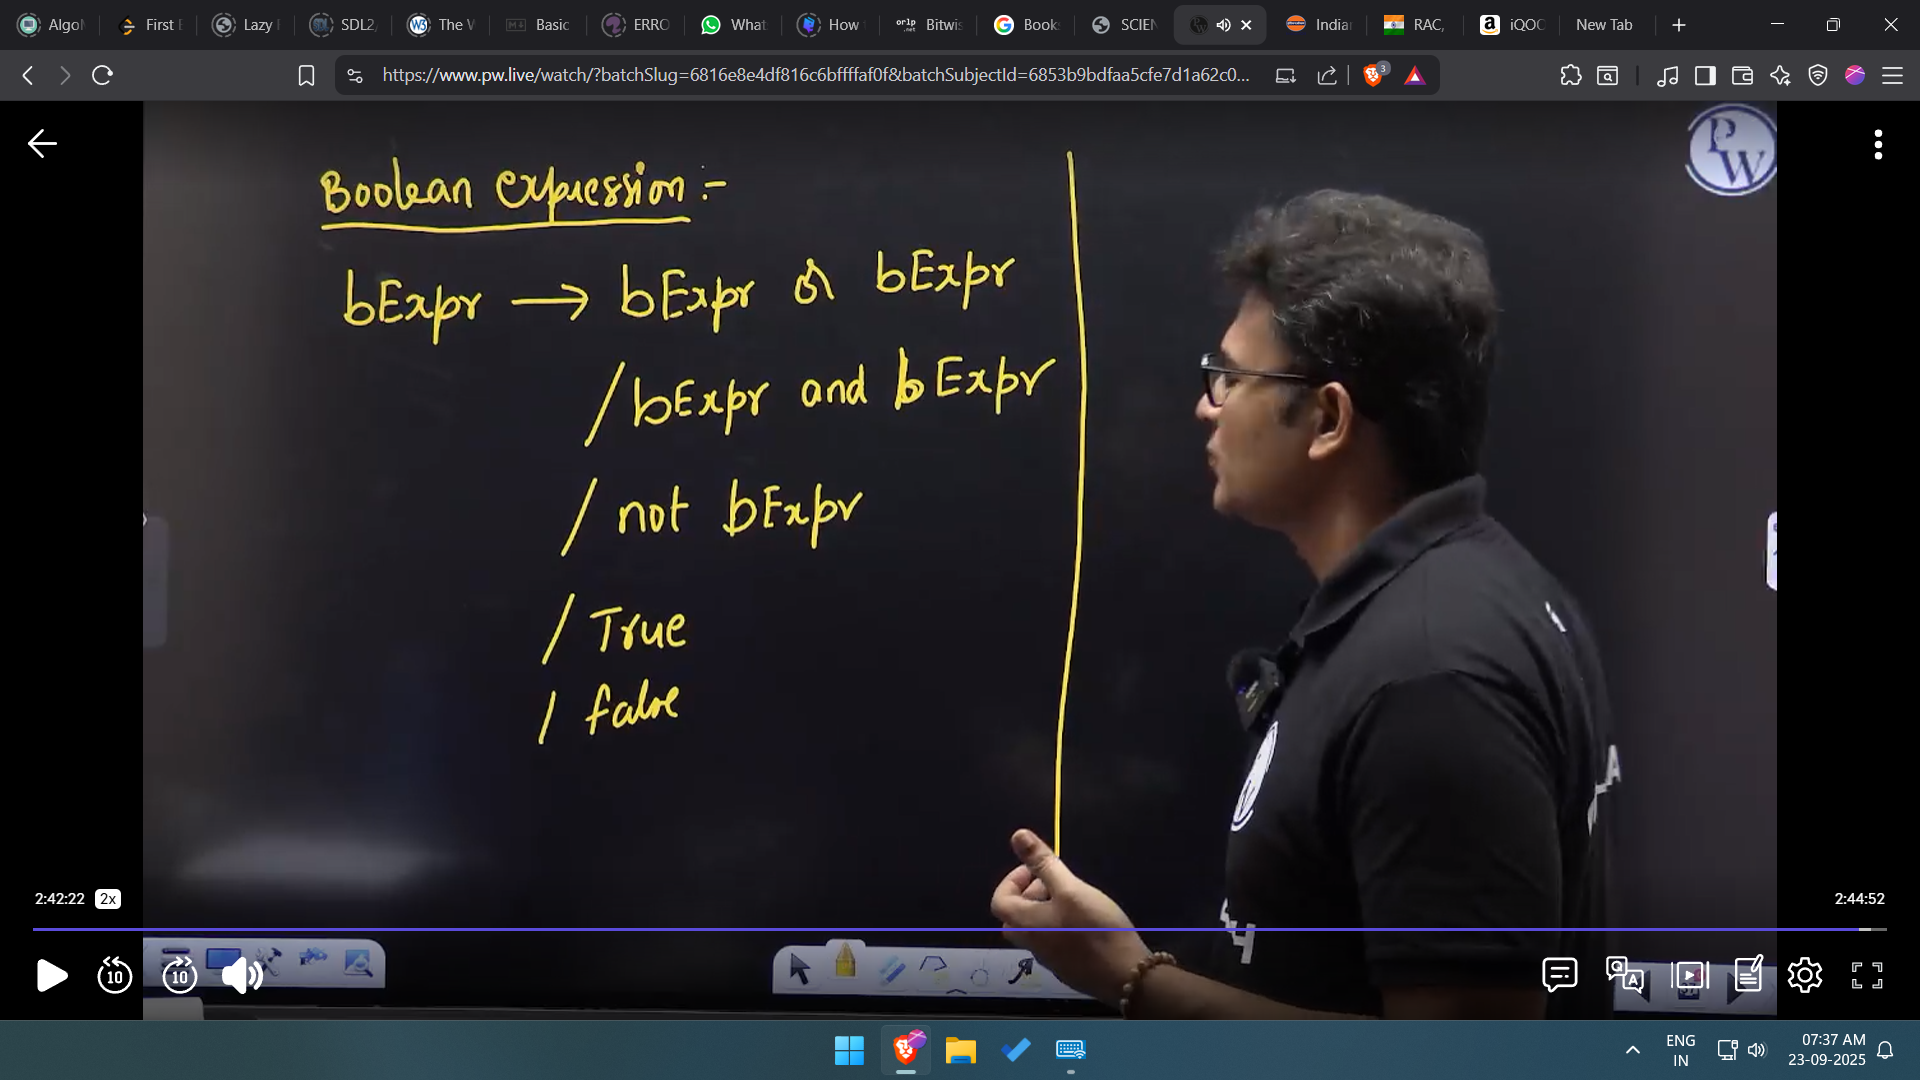 Algo
First E
Lazy
SDL2,
The V
Basic
ERRO
What
How
Bitwis
Book
SCIEN
India
RAC,
iQOO
New Tab
https://www.pw.live/watch/?batchSlug=6816e8e4df816c6bffffaf0f&batchSubjectId=6853b9bdfaa5cfe7d1a62c0...
3
PW
Boolean expression :-
bExpr → bExpr or bExpr
/ bExpr and bExpr
/ not bExpr
/ True
/ false
2:42:22 2x
2:44:52
10 10
ENG
IN
07:37 AM
23-09-2025